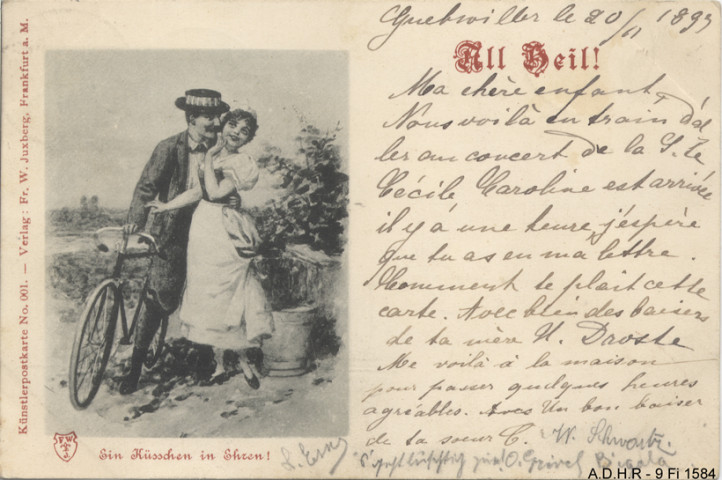 Guebwiller le 20/11 1897
All Heil!
Ma chère enfant,
Nous voilà en train d'al
ler au concert de la S.te
Cécile Caroline est arrivée
il y a une heure, j'espère
que tu as eu ma lettre.
Comment te plaît cette
carte. Avec bien des baisers
de ta mère H. Droste
Me voilà à la maison
pour passer quelques heures
agréables. Avec Un bon baiser
de ta soeur C. W. Schwartz.
O. Grivel
Künstlerpostkarte No. 001. — Verlag: Fr. W. Juxberg, Frankfurt a. M.
Ein Küsschen in Ehren!
A.D.H.R - 9 Fi 1584